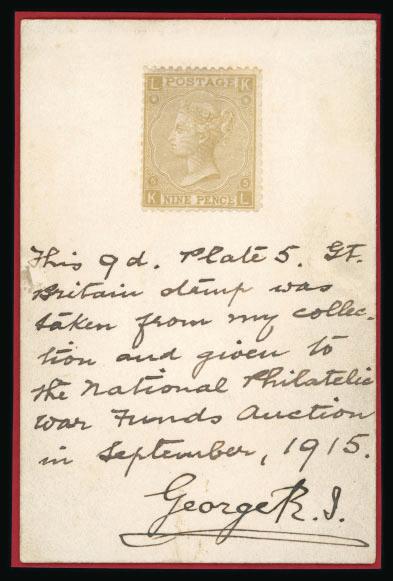 L POSTAGE K
5 5
K NINE PENCE L
This 9d. Plate 5. Gt.
Britain stamp was
taken from my collec-
tion and given to
the National Philatelic
War Funds Auction
in September, 1915.
George R.I.